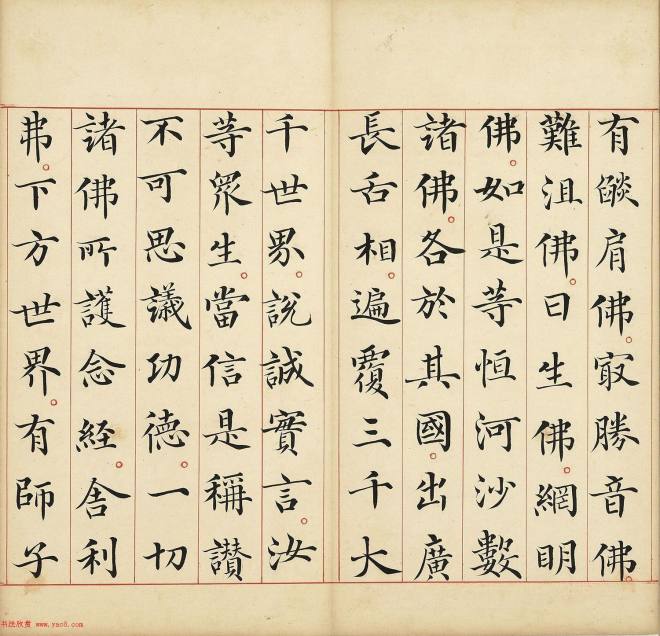 有燄肩佛。㝡勝音佛。
難沮佛。日生佛。網明
佛。如是等恒河沙數
諸佛。各於其國。出廣
長舌相。遍覆三千大
千世界。說誠實言。汝
等眾生。當信是稱讚
不可思議功德。一切
諸佛所護念經。舍利
弗。下方世界。有師子
书法欣赏 www.yac8.com